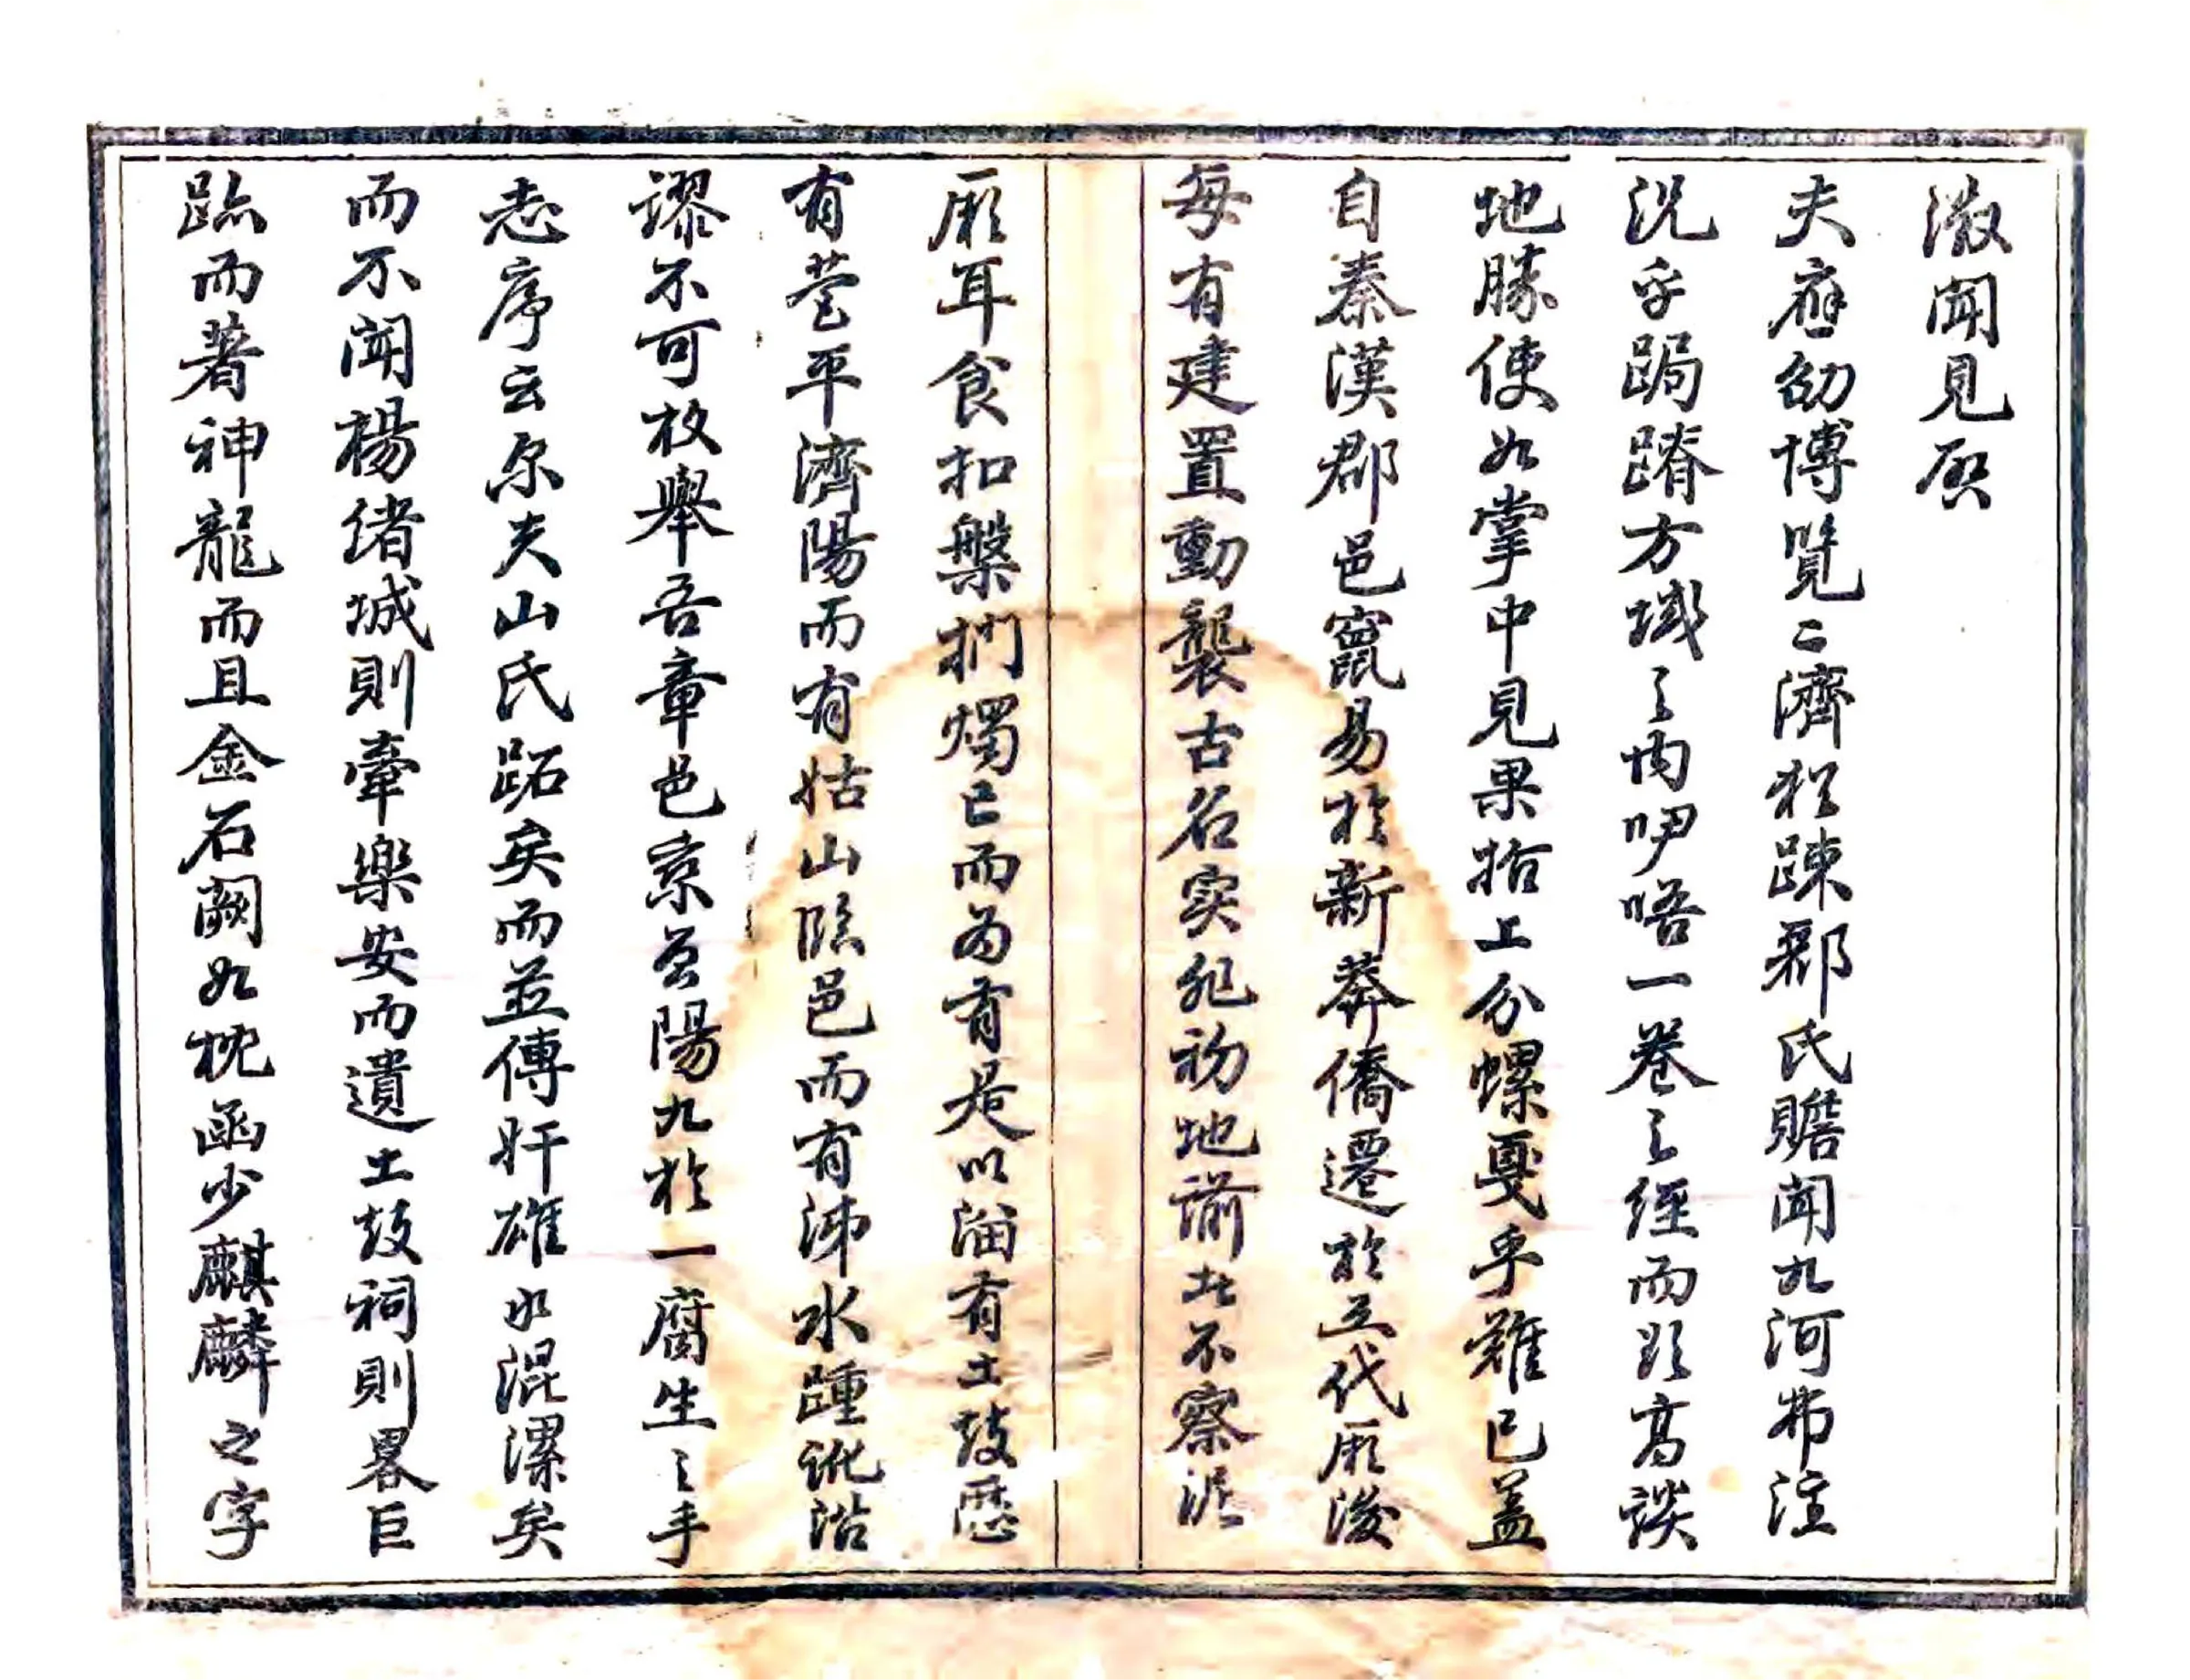 澂聞見啟
夫應劭博覽二濟猶踈鄒氏贍聞九河弗注
況乎跼蹐方域之內咿唔一卷之經而欲高談
地勝使如掌中見果指上分螺戛乎難已蓋
自秦漢郡邑竄易於新莽僑遷於五代厥後
每有建置動襲古名实非初地諭此不察泥
厥耳食扣槃捫燭已而為有是以淄有土鼓歷
有菅平濟陽而有姑山臨邑而有沸水踵訛沿
謬不可枚舉吾章邑索合陽九於一腐生之手
志序云尔夫山氏跖矣而並傳奸雄水混漯矣
而不聞楊緒城則牽樂安而遺土鼓祠則畧巨
跡而著神龍而且金石闕如枕函少麒麟之字